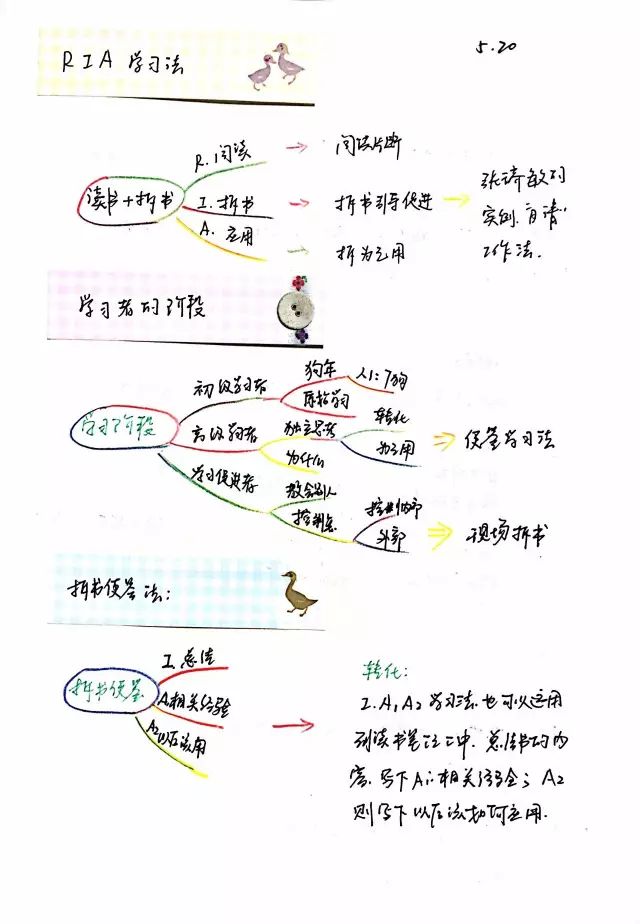 5.20
RIA学习法
R.阅读
阅读片断
读书+拆书
I.拆书
拆书引导促进
张琦敏的
实例.自请
工作法.
A.应用
拆为己用
学习者的阶段
学习阶段
初级学习者
狗年
人1:7狗
高级学习者
独立思考
转化
为己用
便签学习法
为什么
学习促进者
教会别人
控制点
外部
现场拆书
拆书便签法:
拆书便签
I.总结
A1相关经验
A2以后应用
转化:
I.A1A2学习法也可以运用
到读书笔记之中.总结书的内
容.写下A1:相关经验;A2
则写下以后该如何应用.